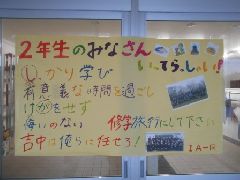 2年生のみなさん
いってらっしゃい!
しっかり学び
有意義な時間を過ごし
けがをせず
悔いのない 修学旅行にして下さい
古中は俺らに任せろ!